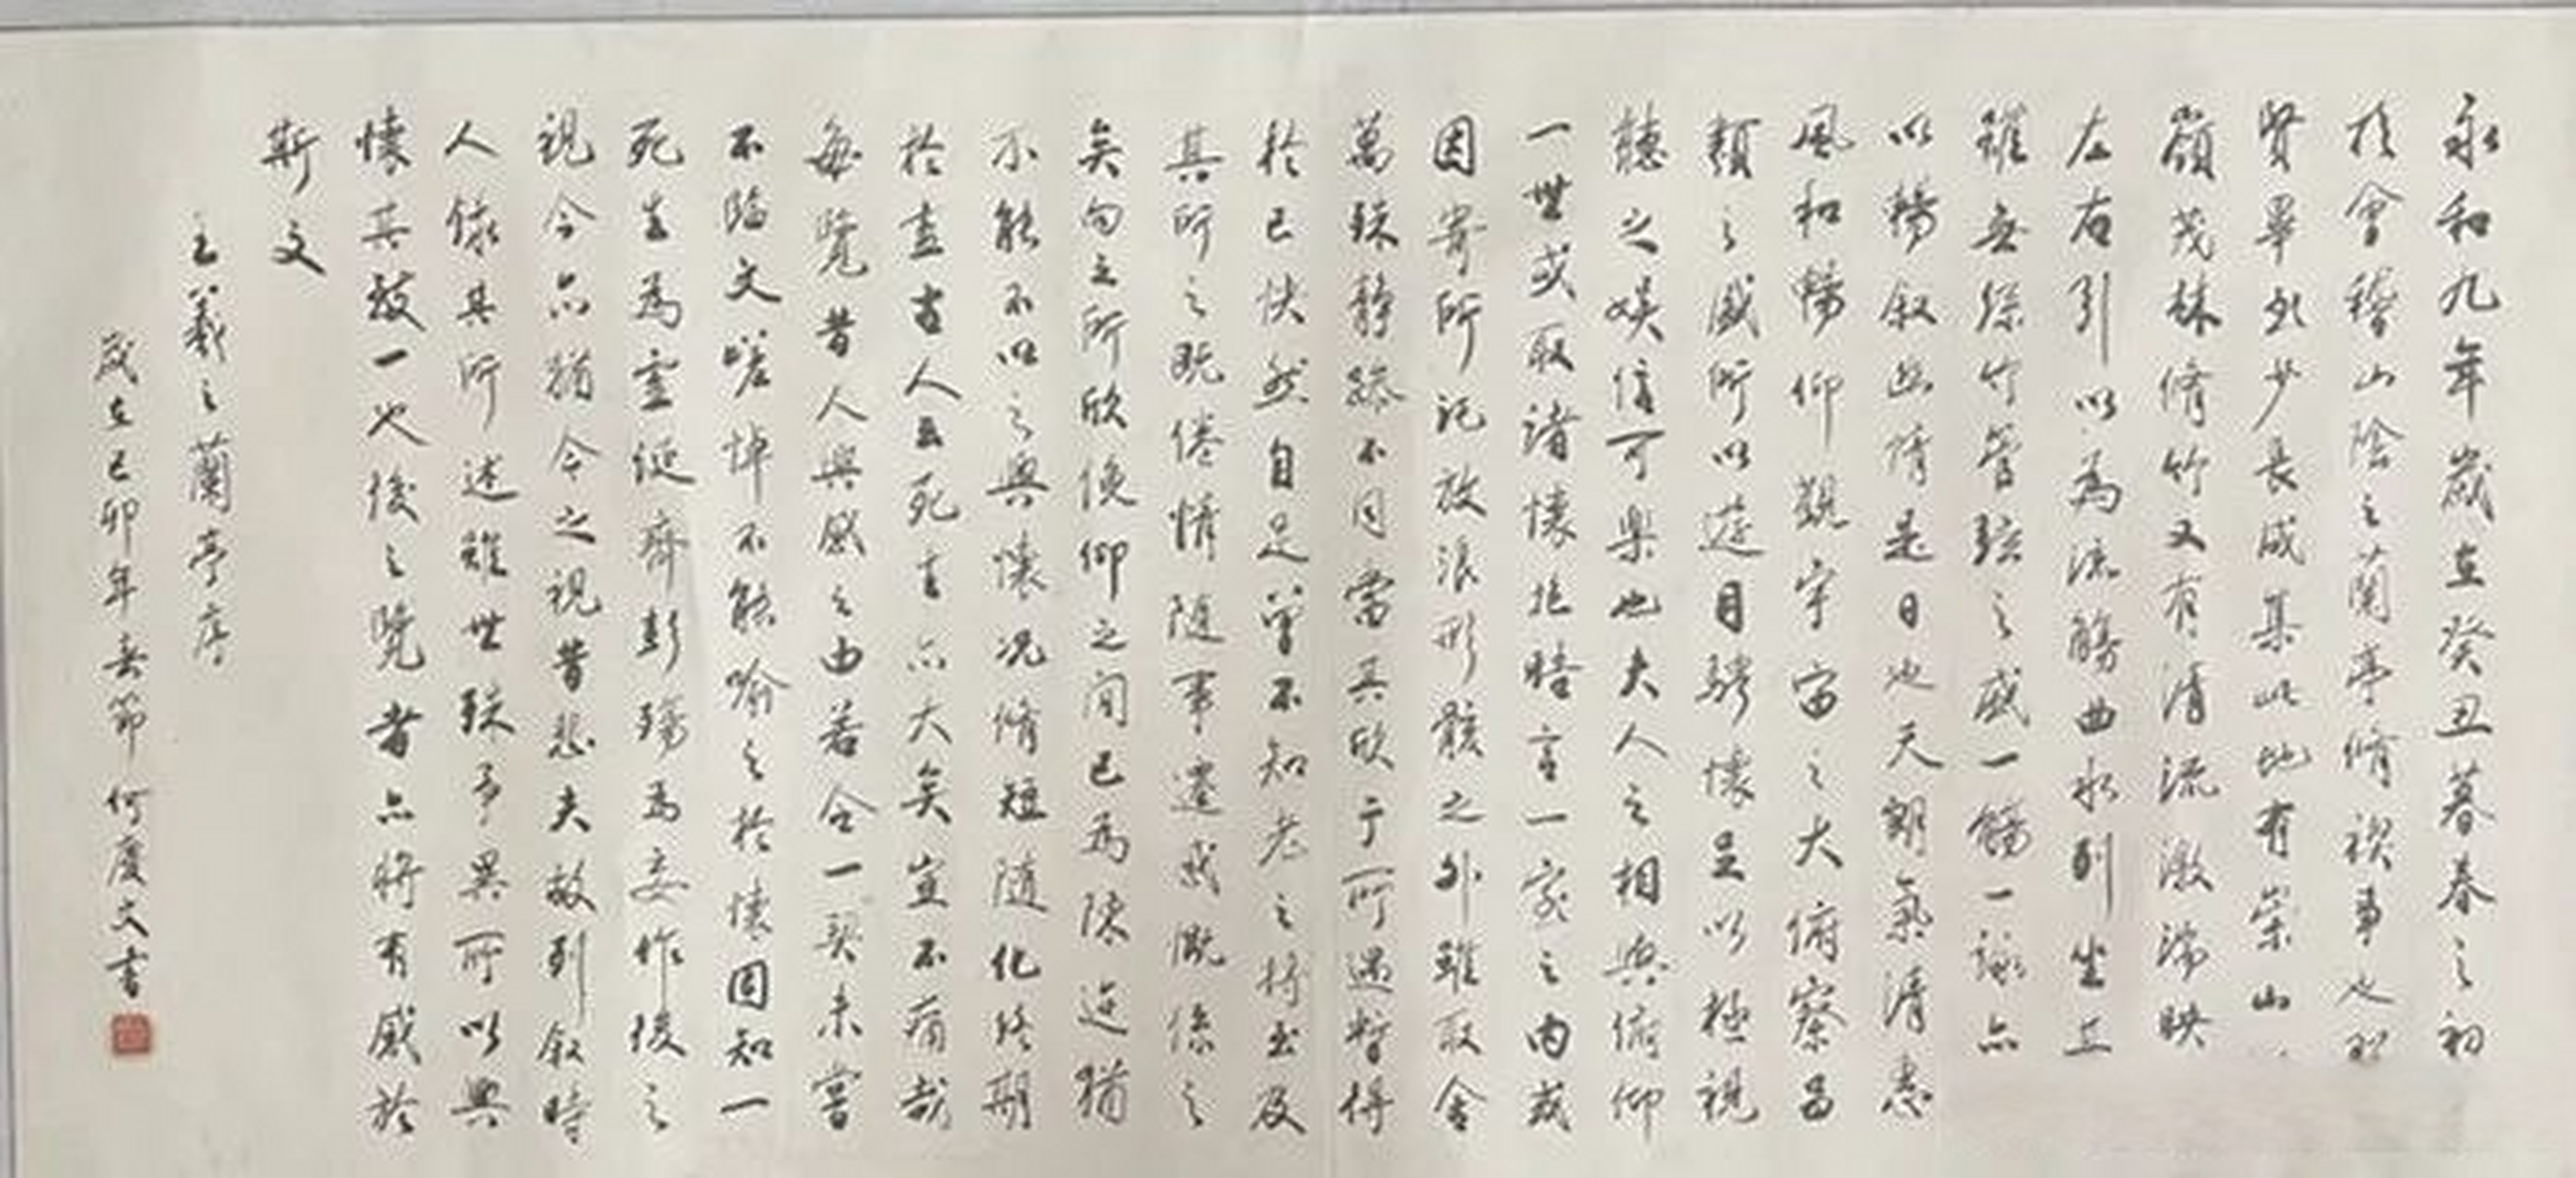 永和九年歲在癸丑暮春之初
於會稽山陰之蘭亭脩禊事也群
賢畢至少長咸集此地有崇山
嶺茂林脩竹又有清流激湍映
左右引以為流觴曲水列坐其
雖無絲竹管弦之盛一觴一詠亦
以暢叙幽情是日也天朗氣清惠
風和暢仰觀宇宙之大俯察品
類之盛所以遊目騁懷足以極視
聽之娛信可樂也夫人之相與俯仰
一世或取諸懷抱晤言一家之內或
因寄所託放浪形骸之外雖取舍
萬殊靜躁不同當其欣于所遇暫得
於己快然自足曾不知老之將至及
其所之既倦情隨事遷感慨係之
矣向之所欣俛仰之間已為陳迹猶
不能不以之興懷況脩短隨化終期
於盡古人云死生亦大矣豈不痛哉
每覽昔人興感之由若合一契未嘗
不臨文嗟悼不能喻之於懷固知一
死生為虛誕齊彭殤為妄作後之
視今亦猶今之視昔悲夫故列叙時
人錄其所述雖世殊事異所以興
懷其致一也後之覽者亦將有感於
斯文
王羲之蘭亭序
歲在己卯年春節何慶文書